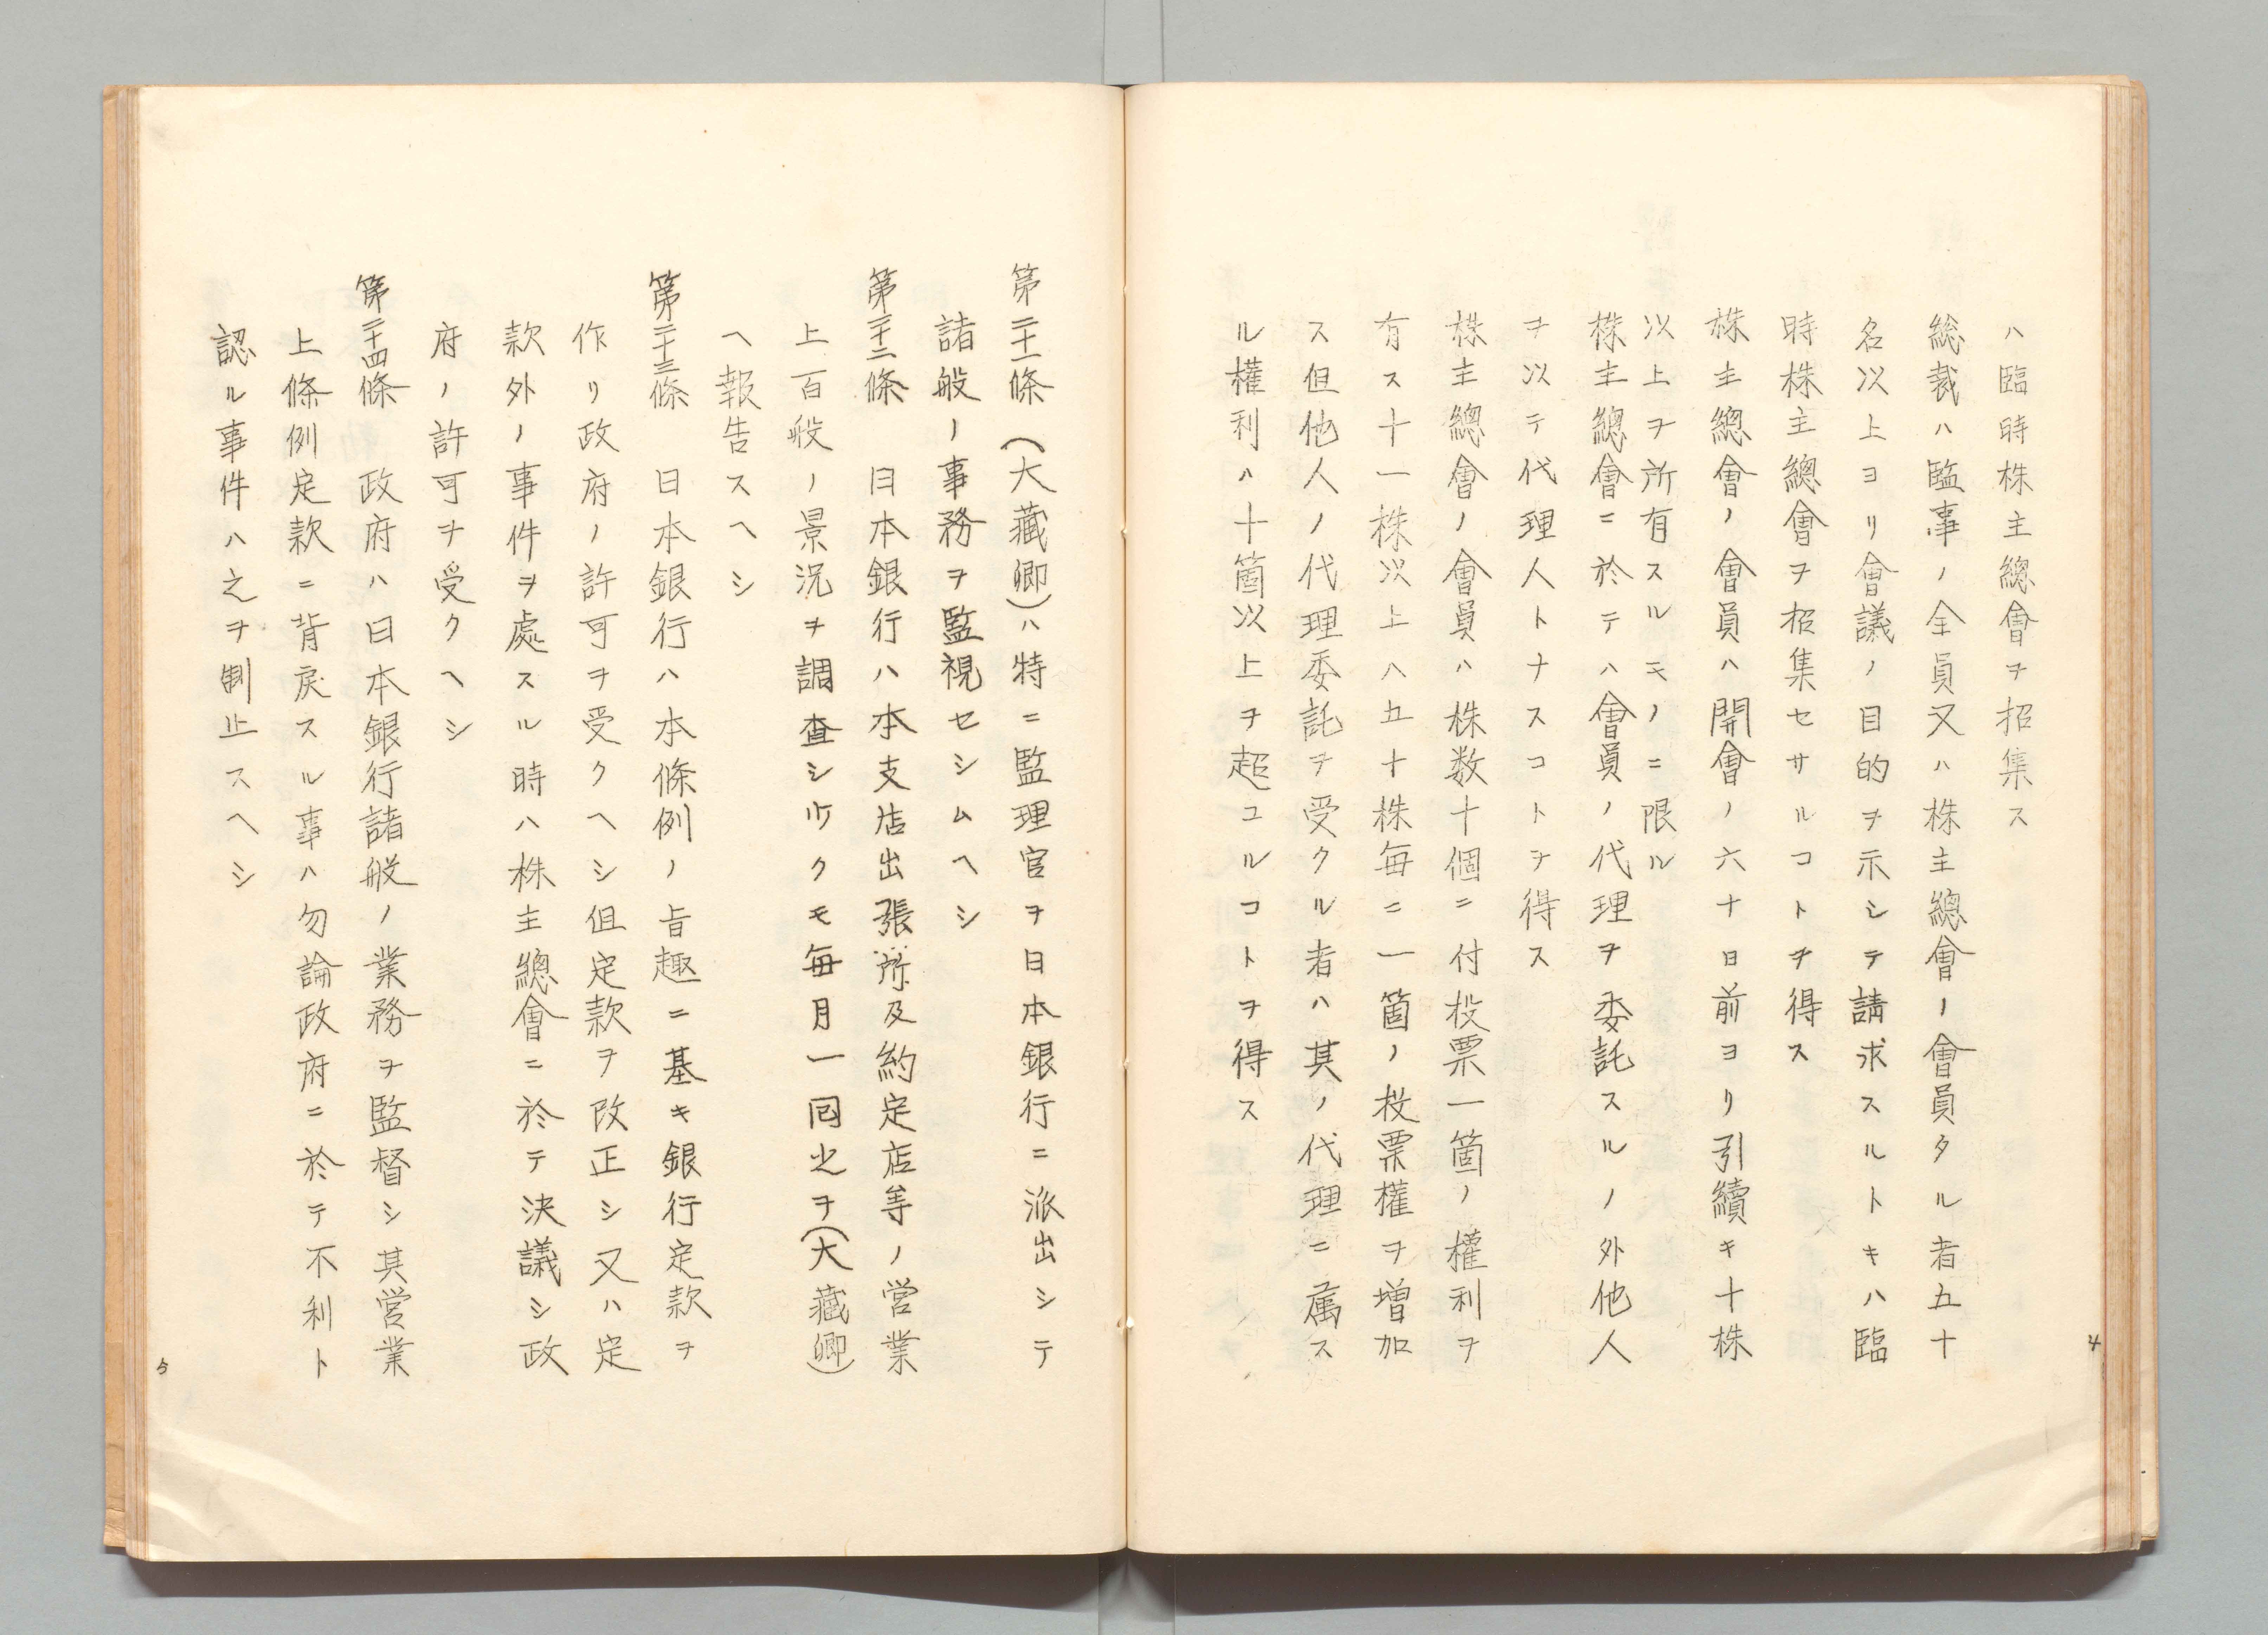 ハ臨時株主總會ヲ招集ス
総裁ハ監事ノ全員又ハ株主總會ノ會員タル者五十
名以上ヨリ會議ノ目的ヲ示シテ請求スルトキハ臨
時株主總會ヲ招集セサルコトヲ得ス
株主總會ノ會員ハ開會ノ六十日前ヨリ引續キ十株
以上ヲ所有スルモノニ限ル
株主總會ニ於テハ會員ノ代理ヲ委託スルノ外他人
ヲ以テ代理人トナスコトヲ得ス
株主總會ノ會員ハ株数十個ニ付投票一箇ノ權利ヲ
有ス十一株以上ハ五十株毎ニ一箇ノ投票權ヲ増加
ス但他人ノ代理委託ヲ受クル者ハ其ノ代理ニ属ス
ル權利ハ十箇以上ヲ超ユルコトヲ得ス
4
第二十一條（大藏卿）ハ特ニ監理官ヲ日本銀行ニ派出シテ
諸般ノ事務ヲ監視セシムヘシ
第二十二條　日本銀行ハ本支店出張所及約定店等ノ営業
上百般ノ景況ヲ調査シ少クモ毎月一回之ヲ（大藏卿）
ヘ報告スヘシ
第二十三條　日本銀行ハ本條例ノ旨趣ニ基キ銀行定款ヲ
作リ政府ノ許可ヲ受クヘシ但定款ヲ改正シ又ハ定
款外ノ事件ヲ處スル時ハ株主總會ニ於テ決議シ政
府ノ許可ヲ受クヘシ
第二十四條　政府ハ日本銀行諸般ノ業務ヲ監督シ其営業
上條例定款ニ背戻スル事ハ勿論政府ニ於テ不利ト
認ル事件ハ之ヲ制止スヘシ
5